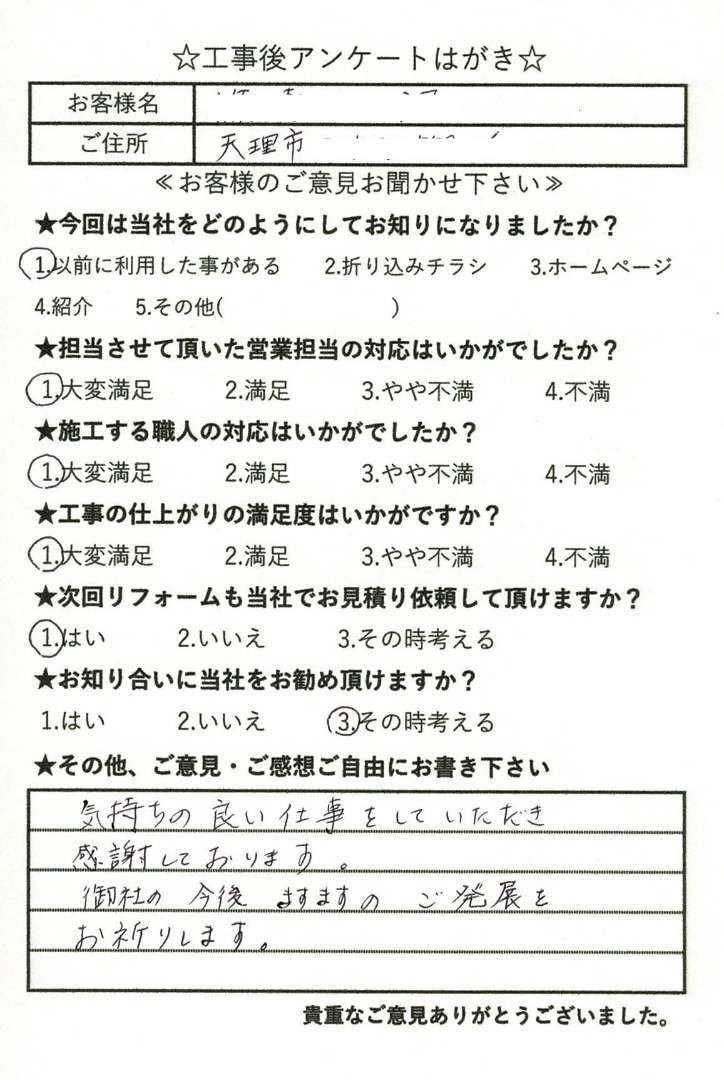 ☆工事後アンケートはがき☆
お客様名
ご住所 天理市
≪お客様のご意見お聞かせ下さい≫
★今回は当社をどのようにしてお知りになりましたか？
1.以前に利用した事がある 2.折り込みチラシ 3.ホームページ
4.紹介 5.その他( )
★担当させて頂いた営業担当の対応はいかがでしたか？
1.大変満足 2.満足 3.やや不満 4.不満
★施工する職人の対応はいかがでしたか？
1.大変満足 2.満足 3.やや不満 4.不満
★工事の仕上がりの満足度はいかがですか？
1.大変満足 2.満足 3.やや不満 4.不満
★次回リフォームも当社でお見積り依頼して頂けますか？
1.はい 2.いいえ 3.その時考える
★お知り合いに当社をお勧め頂けますか？
1.はい 2.いいえ 3.その時考える
★その他、ご意見・ご感想ご自由にお書き下さい
気持ちの良い仕事をしていただき
感謝しております。
御社の今後ますますのご発展を
お祈りします。
貴重なご意見ありがとうございました。